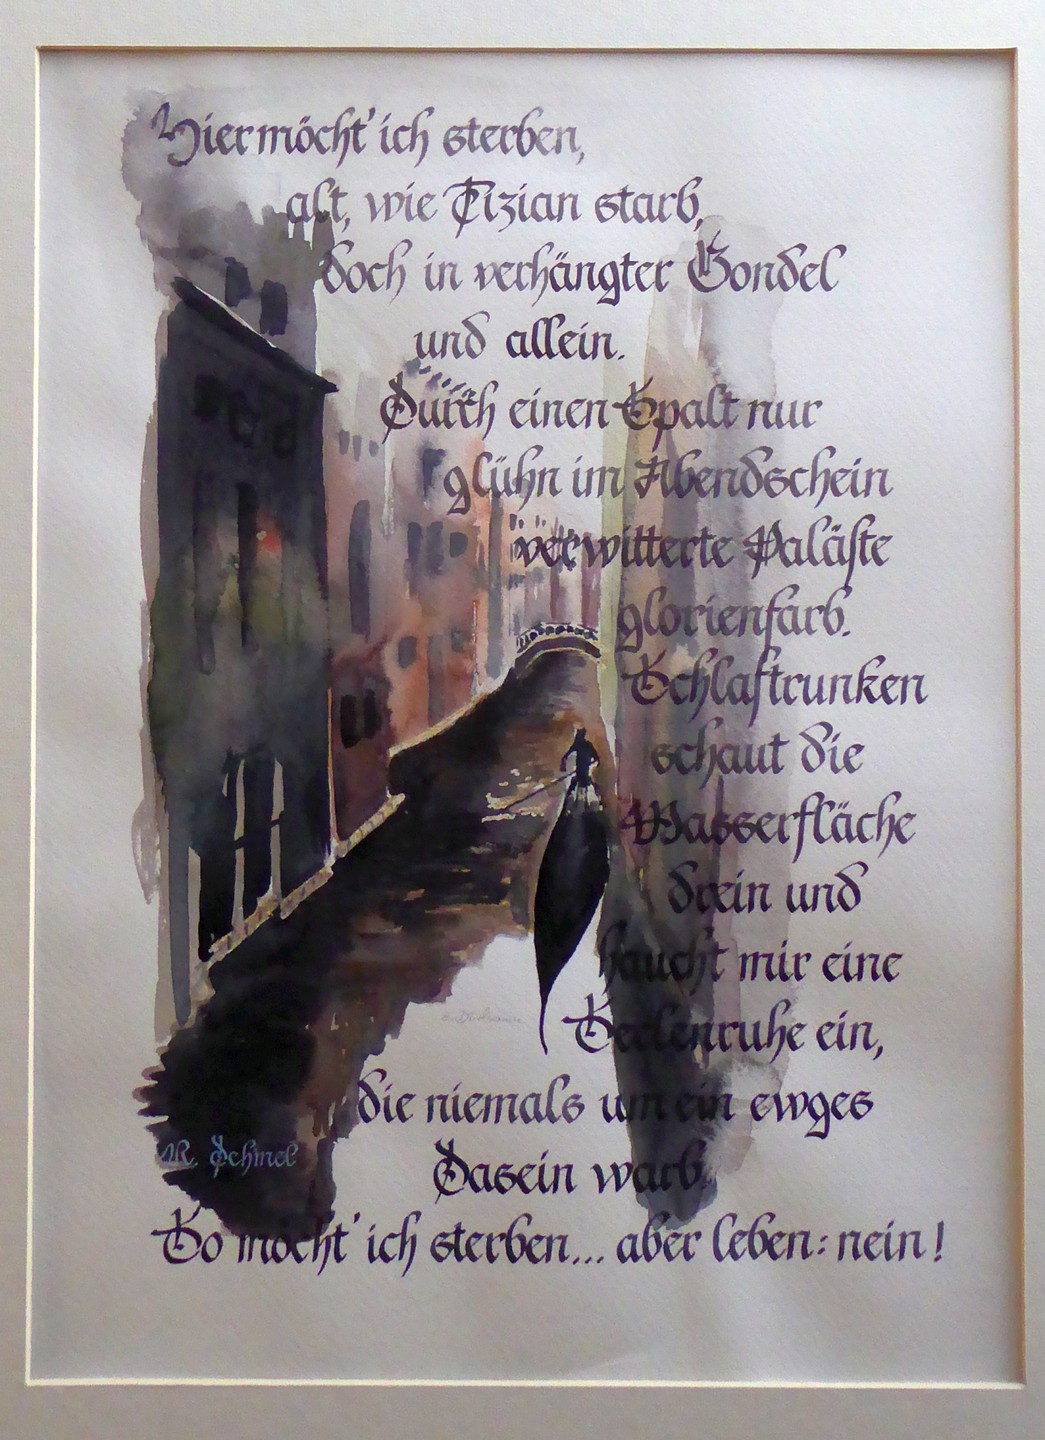 Hier möcht' ich sterben,
alt, wie Tizian starb,
doch in verhängter Gondel
und allein.
Durch einen Spalt nur
glühn im Abendschein
verwitterte Paläste
glorienfarb.
Schlaftrunken
schaut die
Wasserfläche
drein und
haucht mir eine
Seelenruhe ein,
die niemals um ein ewges
Dasein warb.
R. Dehmel
So möcht' ich sterben... aber leben: nein!